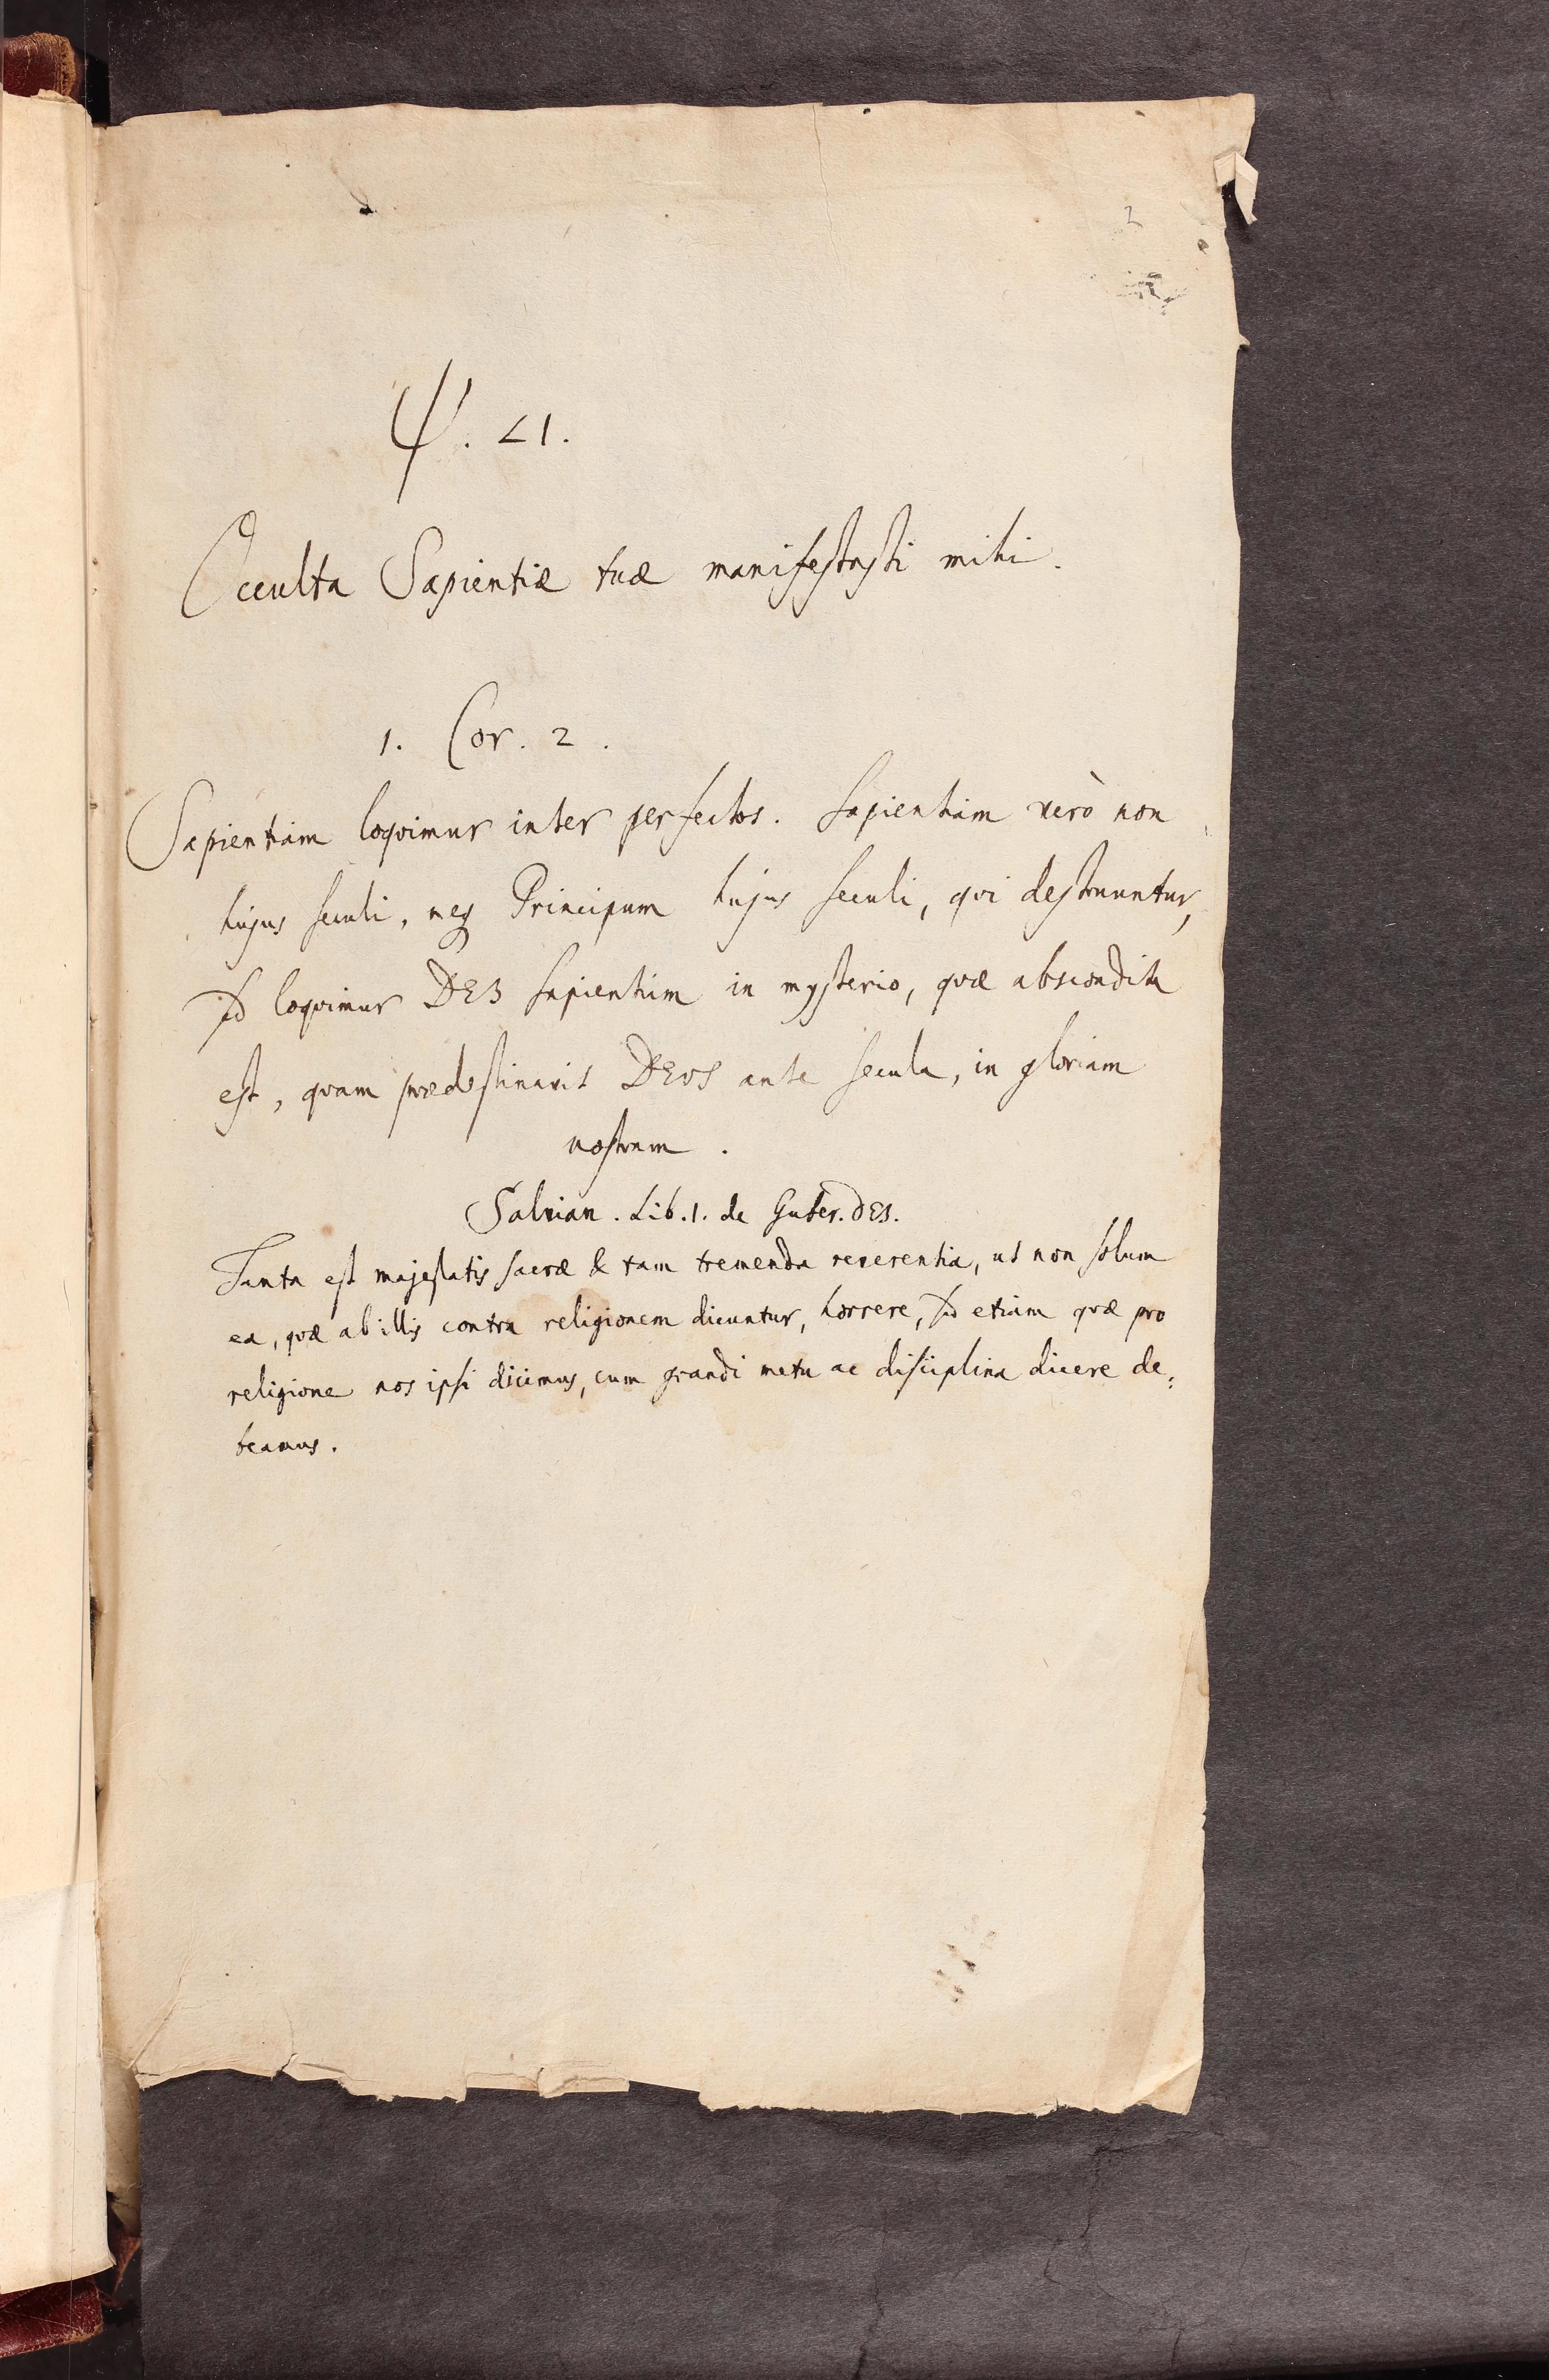 2
Ψ. L1.
Occulta Sapientiæ tuæ manifestasti mihi.
1. Cor. 2.
Sapientiam loqvimur inter perfectos. Sapientiam verò non
hujus seculi, neq Principum hujus seculi, qvi destruuntur,
sed loqvimur DEI sapientiam in mysterio, qvæ abscondita
est, qvam prædestinavit DEUS ante secula, in gloriam
nostram.
Salvian. Lib. 1. de Guber. DEI.
Tanta est majestatis sacræ & tam tremenda reverentia, ut non solum
ea, qvæ ab illis contra religionem dicuntur, horrere, sed etiam qvæ pro
religione nos ipsi dicimus, cum grandi metu ac disciplina dicere de:
beamus.